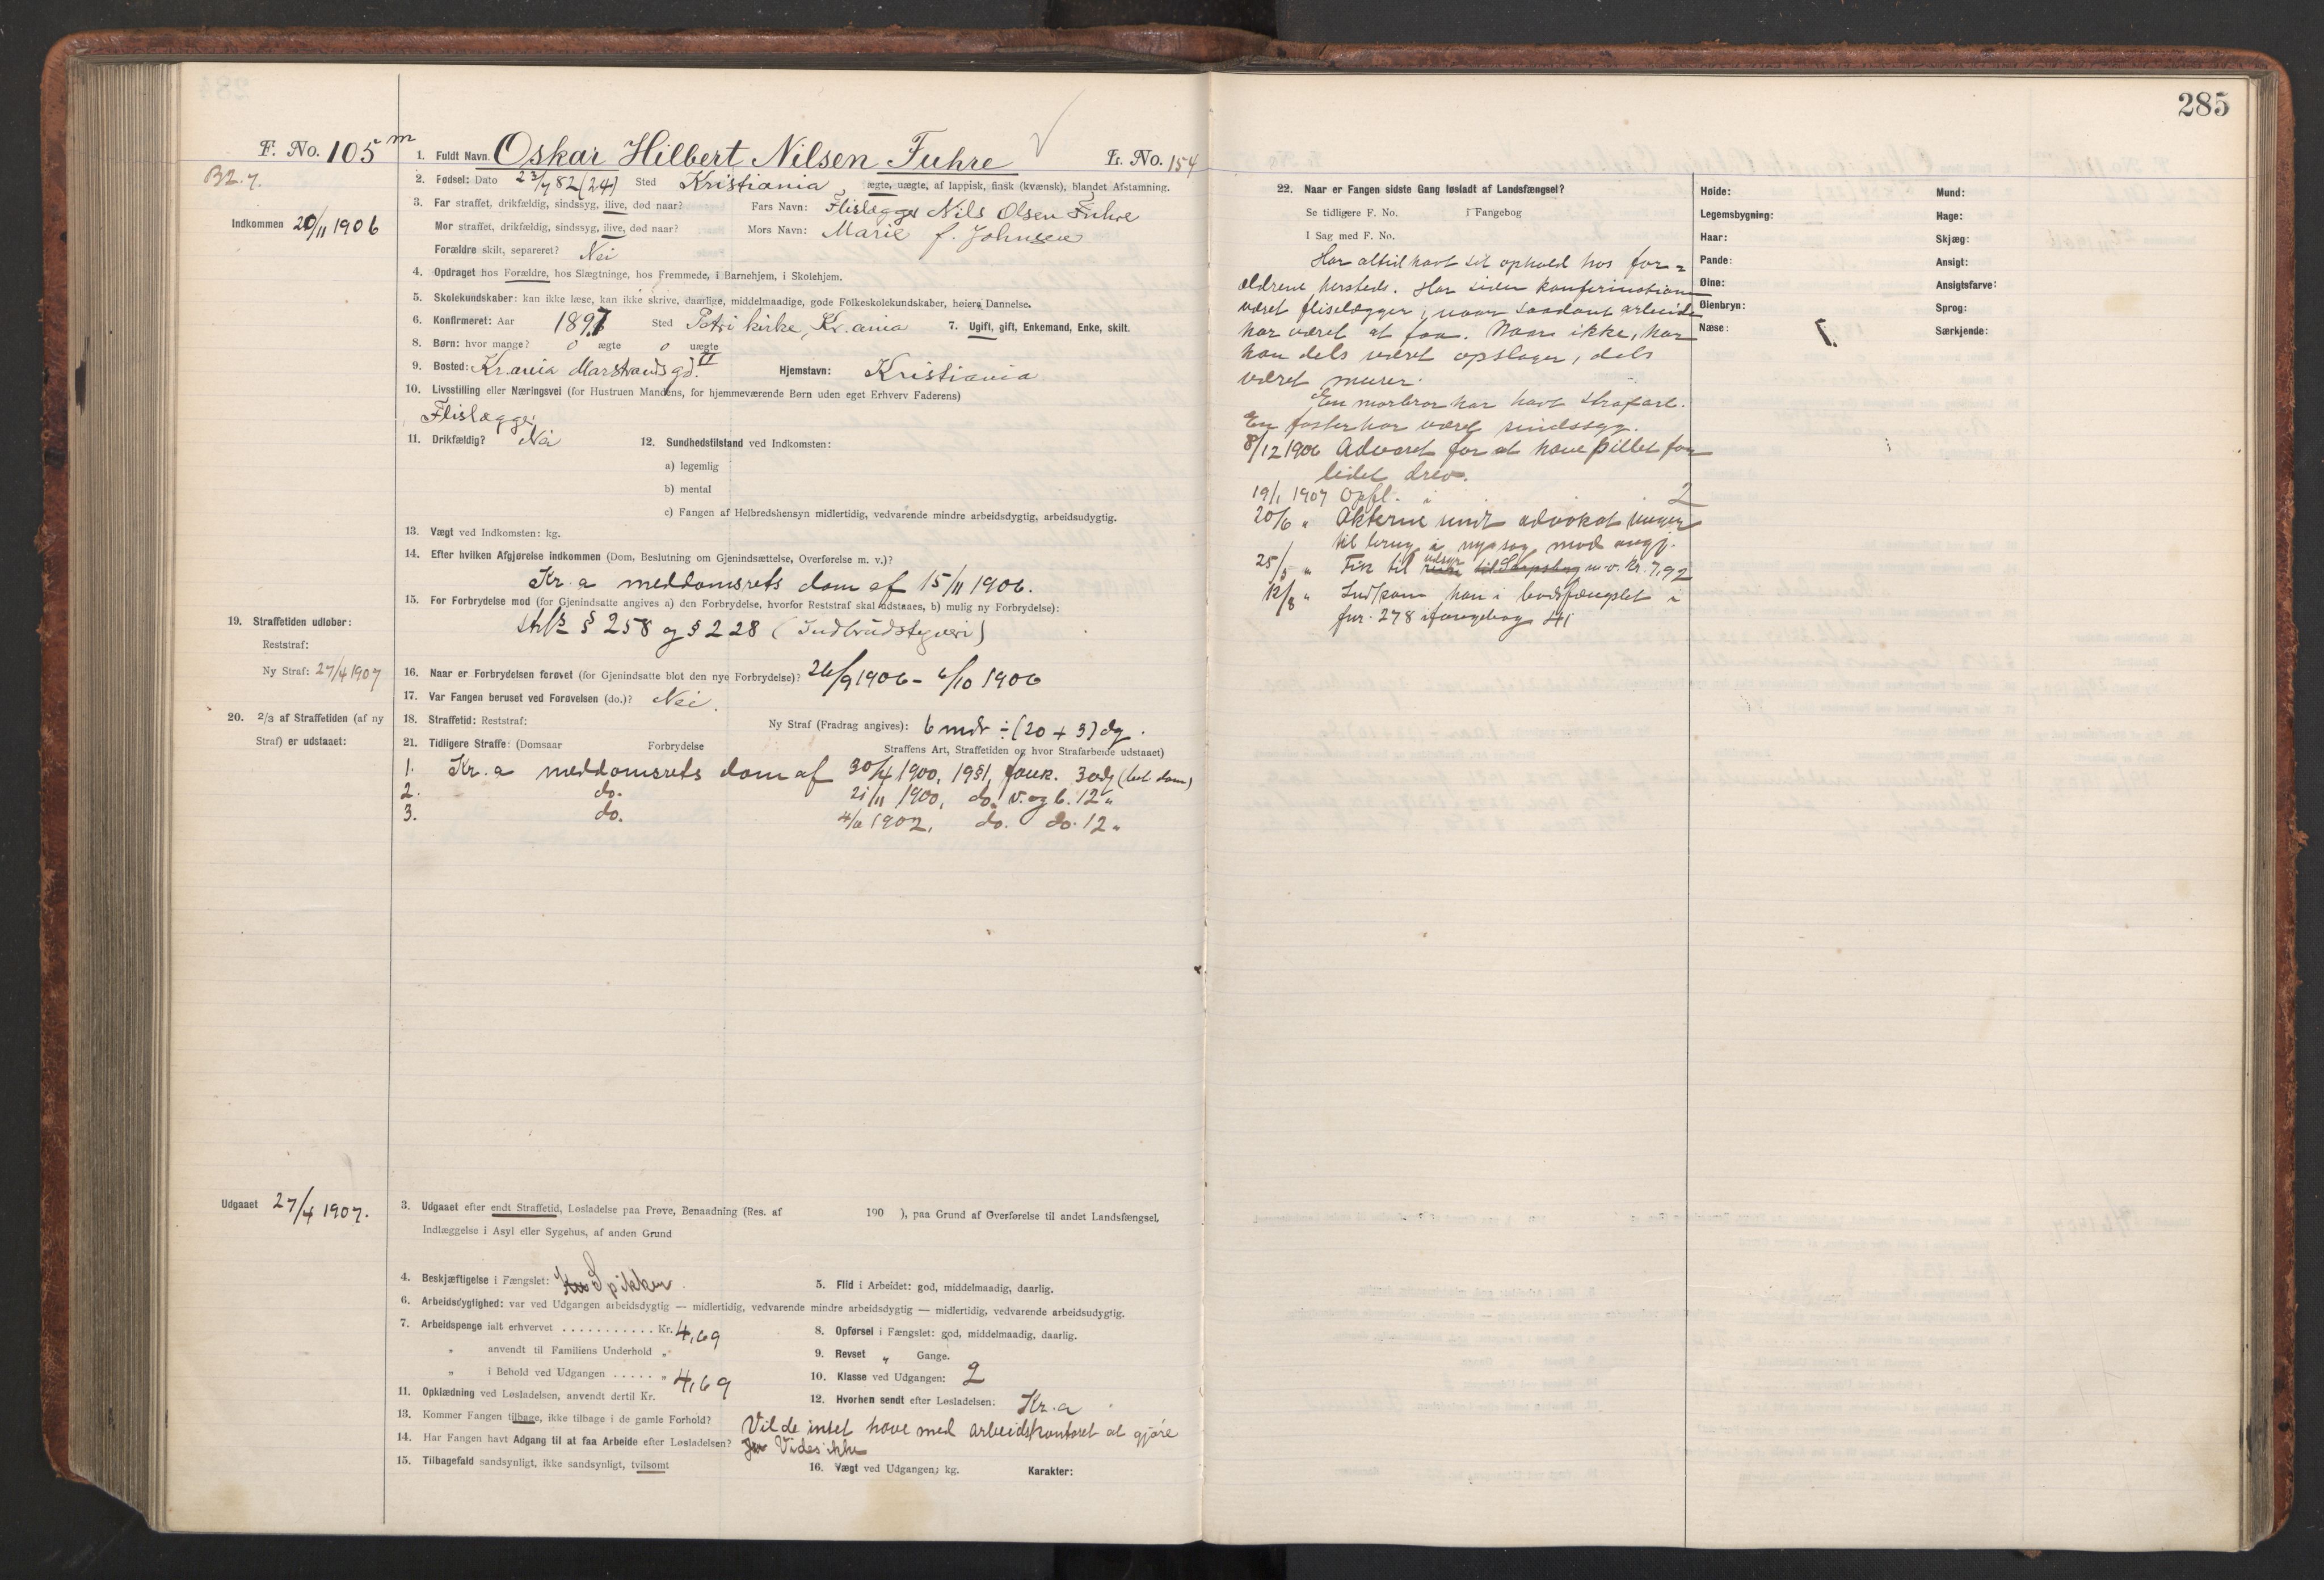 285
F. No. 105 m
1. Fuldt Navn. Oskar Hilbert Nilsen Fuhre Lr. No. 154
B2.7.
2. Fødsel: Dato 23/7 82 (24) Sted Kristiania, ægte, uægte, af lappisk, finsk (kvænsk), blandet Afstamning.
Indkommen 20/11 1906
3. Far straffet, drikfældig, sindssyg, ilive, død naar? Fars Navn: Fliselægger Nils Olsen Fuhre
Mor straffet, drikfældig, sindssyg, ilive, død naar? Mors Navn: Marie f. Johnsen
Forældre skilt, separeret? Nei
4. Opdraget hos Forældre, hos Slægtninge, hos Fremmede, i Barnehjem, i Skolehjem.
5. Skolekundskaber: kan ikke læse, kan ikke skrive, daarlige, middelmaadige, gode Folkeskolekundskaber, høiere Dannelse.
6. Konfirmeret: Aar 1897 Sted Petri kirke, Kr.ania 7. Ugift, gift, Enkemand, Enke, skilt.
8. Børn: hvor mange? 0 ægte 0 uægte
9. Bosted: Kr.ania Marstrandsgd. II Hjemstavn: Kristiania
10. Livsstilling eller Næringsvei (for Hustruen Mandens, for hjemmeværende Børn uden eget Erhverv Faderens)
Flislægger
11. Drikfældig? Nei 12. Sundhedstilstand ved Indkomsten:
a) legemlig
b) mental
c) Fangen af Helbredshensyn midlertidig, vedvarende mindre arbeidsdygtig, arbeidsudygtig.
13. Vægt ved Indkomsten: kg.
14. Efter hvilken Afgjørelse indkommen (Dom, Beslutning om Gjenindsættelse, Overførelse m. v.)?
Kr.a meddomsrets dom af 15/11 1906.
15. For Forbrydelse mod (for Gjenindsatte angives a) den Forbrydelse, hvorfor Reststraf skal udstaaes, b) mulig ny Forbrydelse):
Strfl § 258 og § 228 (Indbrudstyveri)
19. Straffetiden udløber:
Reststraf:
Ny Straf: 27/4 1907
16. Naar er Forbrydelsen forøvet (for Gjenindsatte blot den nye Forbrydelse)? 26/9 1906 - 6/10 1906
17. Var Fangen beruset ved Forøvelsen (do.)? Nei.
20. 2/3 af Straffetiden (af ny
Straf) er udstaaet:
18. Straffetid: Reststraf: Ny Straf (Fradrag angives): 6 mdr ÷ (20 + 3) dg.
21. Tidligere Straffe: (Domsaar Forbrydelse Straffens Art, Straffetiden og hvor Strafarbeide udstaaet)
1. Kr.a meddomsrets dom af 30/4 1900, 19§1, fænk. 30dg (bet dom)
2. do. 21/11 1900, do. v. og b. 12 "
3. do. 1902, do. do. 12 "
Udgaaet 27/4 1907.
3. Udgaaet efter endt Straffetid, Løsladelse paa Prøve, Benaadning (Res. af 190 ), paa Grund af Overførelse til andet Landsfængsel,
Indlæggelse i Asyl eller Sygehus, af anden Grund
4. Beskjæftigelse i Fængslet: Spikker. 5. Flid i Arbeidet: god, middelmaadig, daarlig.
6. Arbeidsdygtighed: var ved Udgangen arbeidsdygtig — midlertidig, vedvarende mindre arbeidsdygtig — midlertidig, vedvarende arbeidsudygtig.
7. Arbeidspenge ialt erhvervet . . . . . . . . . . . Kr. 4,69 8. Opførsel i Fængslet: god, middelmaadig, daarlig.
" anvendt til Familiens Underhold " 9. Revset " Gange.
" i Behold ved Udgangen . . . . . " 4,69 10. Klasse ved Udgangen: 2
11. Opklædning ved Løsladelsen, anvendt dertil Kr. 12. Hvorhen sendt efter Løsladelsen: Kr.a
13. Kommer Fangen tilbage, ikke tilbage i de gamle Forhold? Vilde intet have med arbeidskontoret at gjøre
14. Har Fangen havt Adgang til at faa Arbeide efter Løsladelsen? Vides ikke
15. Tilbagefald sandsynligt, ikke sandsynligt, tvilsomt 16. Vægt ved Udgangen: kg. Karakter:
22. Naar er Fangen sidste Gang løsladt af Landsfængsel?
Se tidligere F. No. i Fangebog
I Sag med F. No.
Har altid havt sit ophold hos for=
ældrene hersteds. Har siden konfirmationen
været fliselægger, naar saadant arbeide
har været at faa. Naar ikke, har
han dels været opslager, dels
været murer.
En morbror har havt strafarb.
En faster har været sindssyg.
8/12 1906 Advaret for at have pillet for
lidet drev.
19/1 1907 Opfl. i 2
20/6 " Akterne sendt advokat
til brug i ny sag mod angj.
25/5 " Fik til udstyr m.v. Kr. 7,92
12/8 " Indkom han i bodsfængslet i
fnr. 278 i fangebog
Høide:
Legemsbygning:
Haar:
Pande:
Øine:
Øienbryn:
Næse:
Mund:
Hage:
Skjæg:
Ansigt:
Ansigtsfarve:
Sprog:
Særkjende: